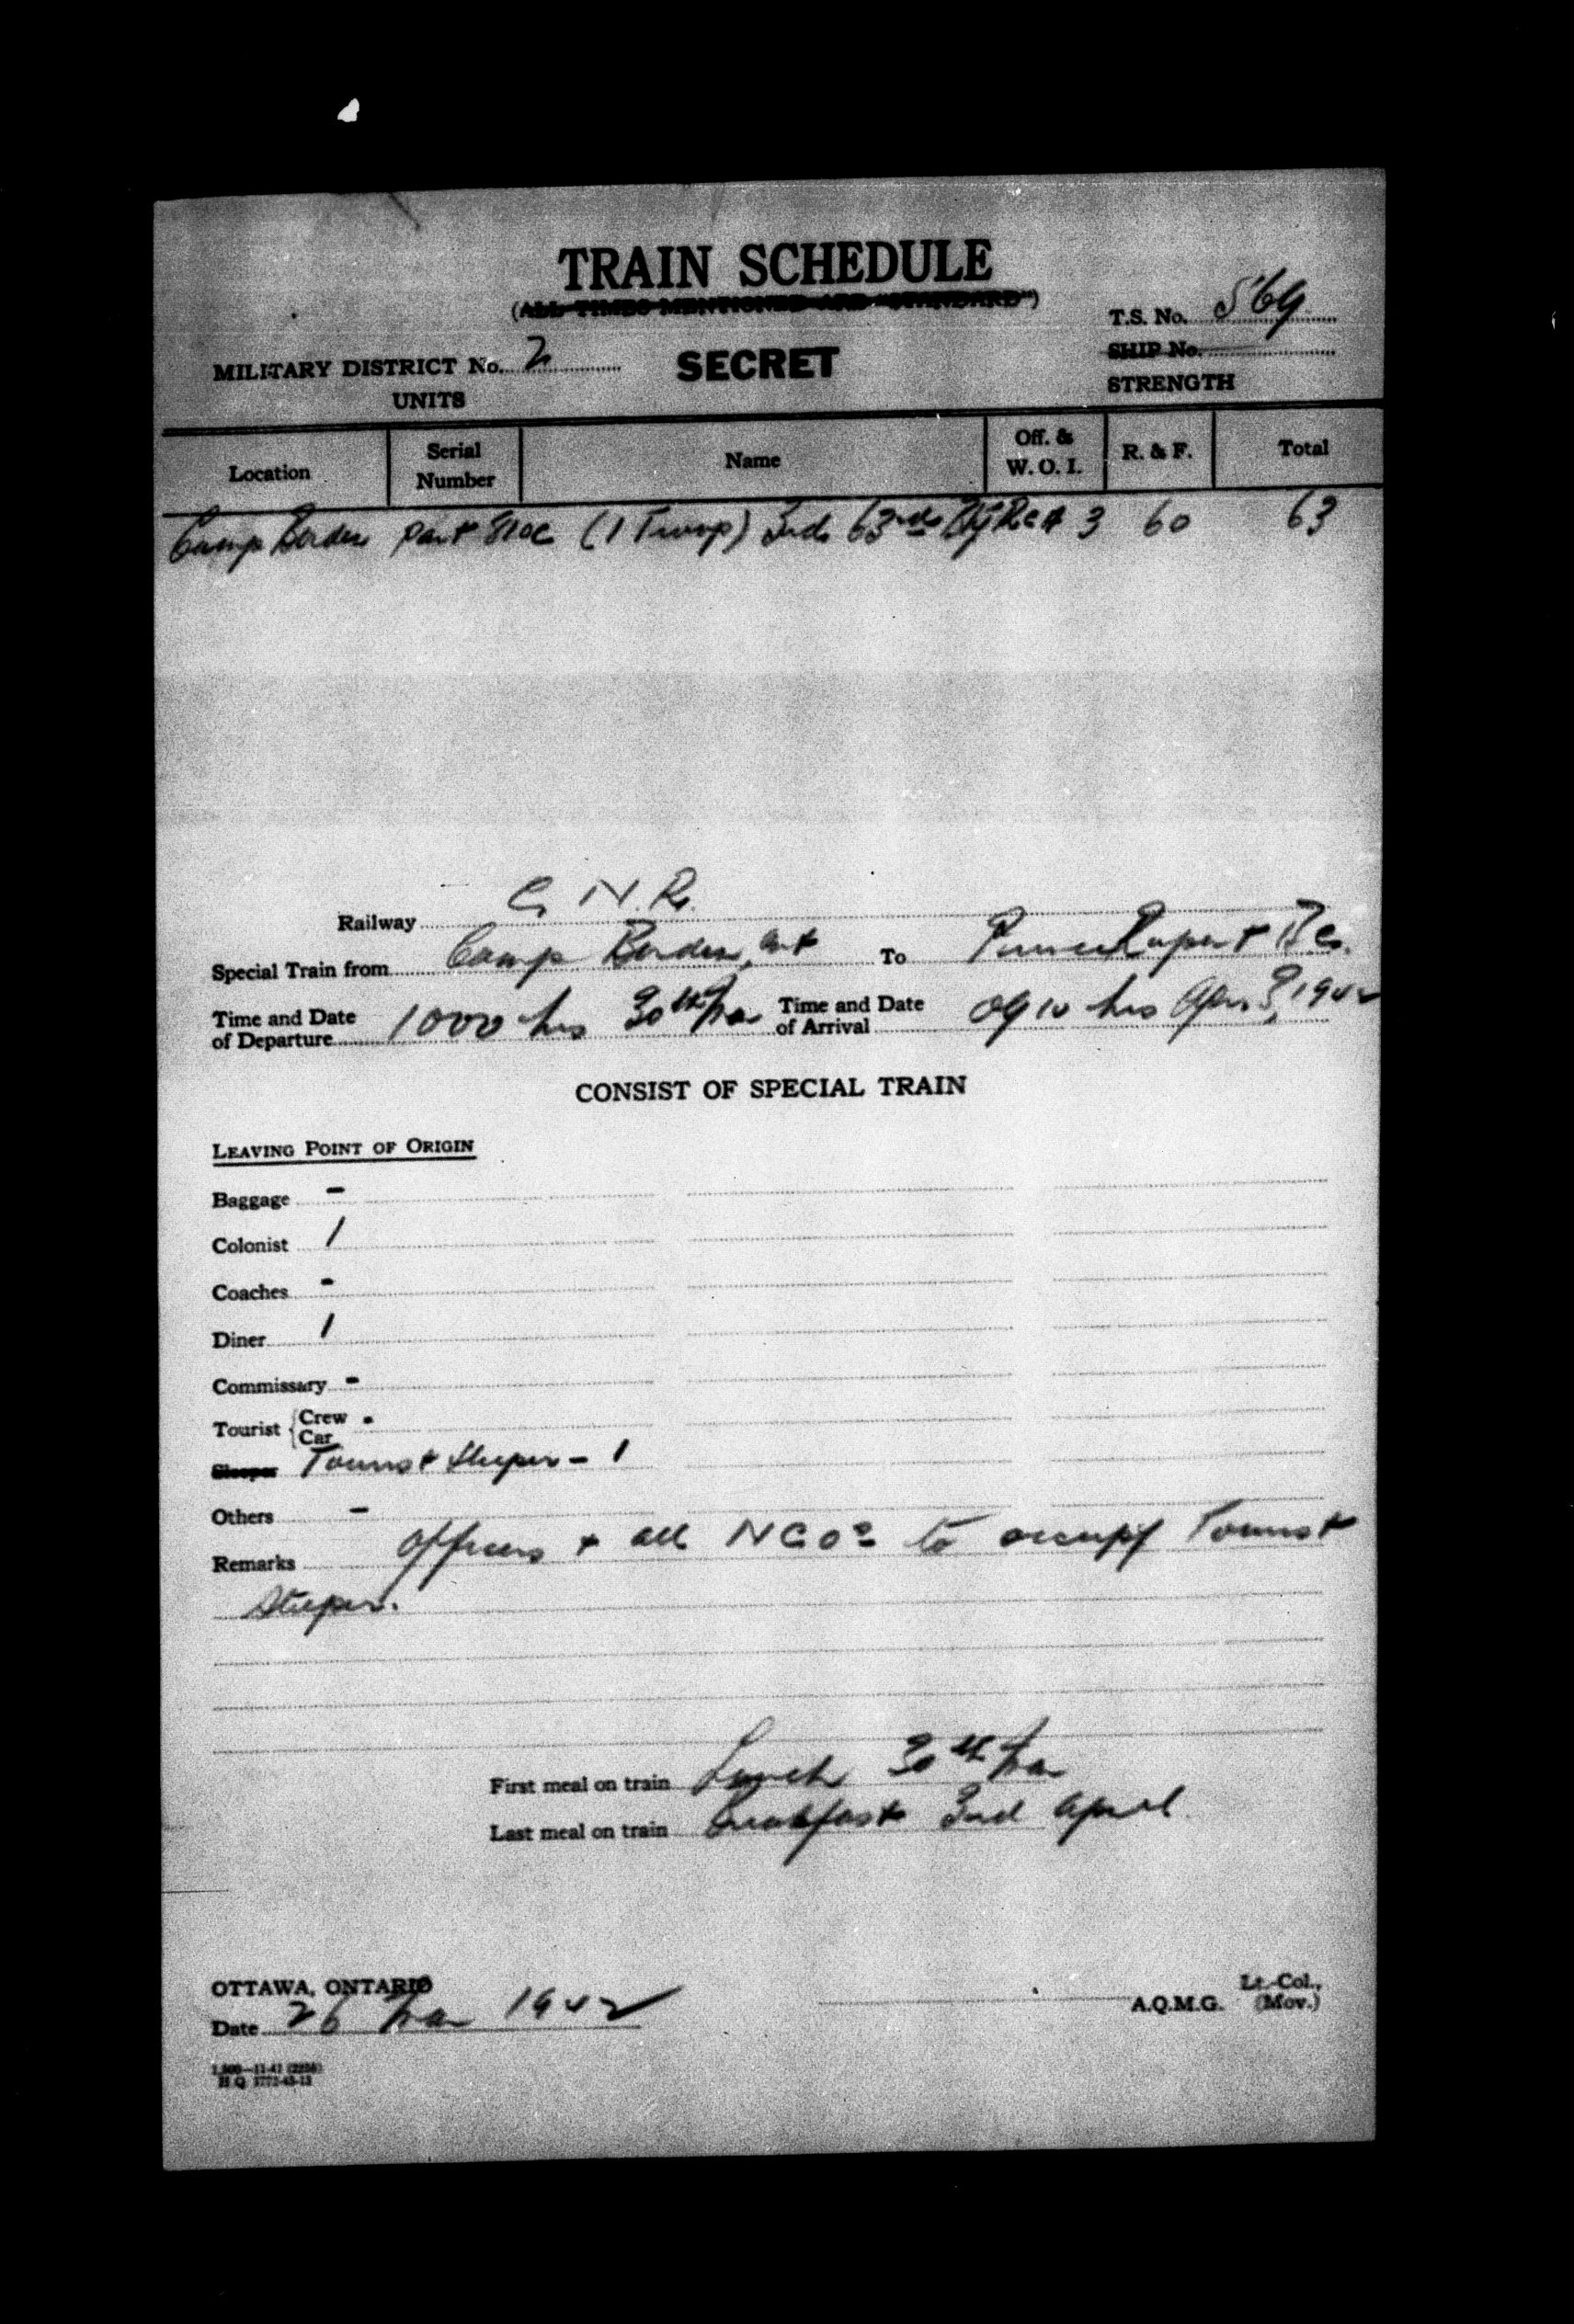 TRAIN SCHEDULE
(ALL TIMES MENTIONED ARE "STANDARD")
T.S. No. 569
MILITARY DISTRICT No. 2 SECRET SHIP No.
UNITS STRENGTH
Location Serial Number Name Off. & W. O. I. R. & F. Total
Camp Borden Part 810C (1 Troop) 63rd Bty 3 60 63
Railway C.N.R.
Special Train from Camp Borden, Ont To Prince Rupert B.C.
Time and Date of Departure 1000 hrs 30th Mar Time and Date of Arrival 0910 hrs Apr. 3, 1942
CONSIST OF SPECIAL TRAIN
LEAVING POINT OF ORIGIN
Baggage -
Colonist 1
Coaches -
Diner 1
Commissary -
Tourist { Crew -
Car
Sleeper Tourist Sleeper - 1
Others -
Remarks Officers + all NCOs to occupy Tourist
Sleeper.
First meal on train Lunch 30th Mar
Last meal on train Breakfast 3rd April
OTTAWA, ONTARIO
Lt.-Col.,
A.Q.M.G. (Mov.)
Date 26 Mar 1942
H.Q. 1772-45-13